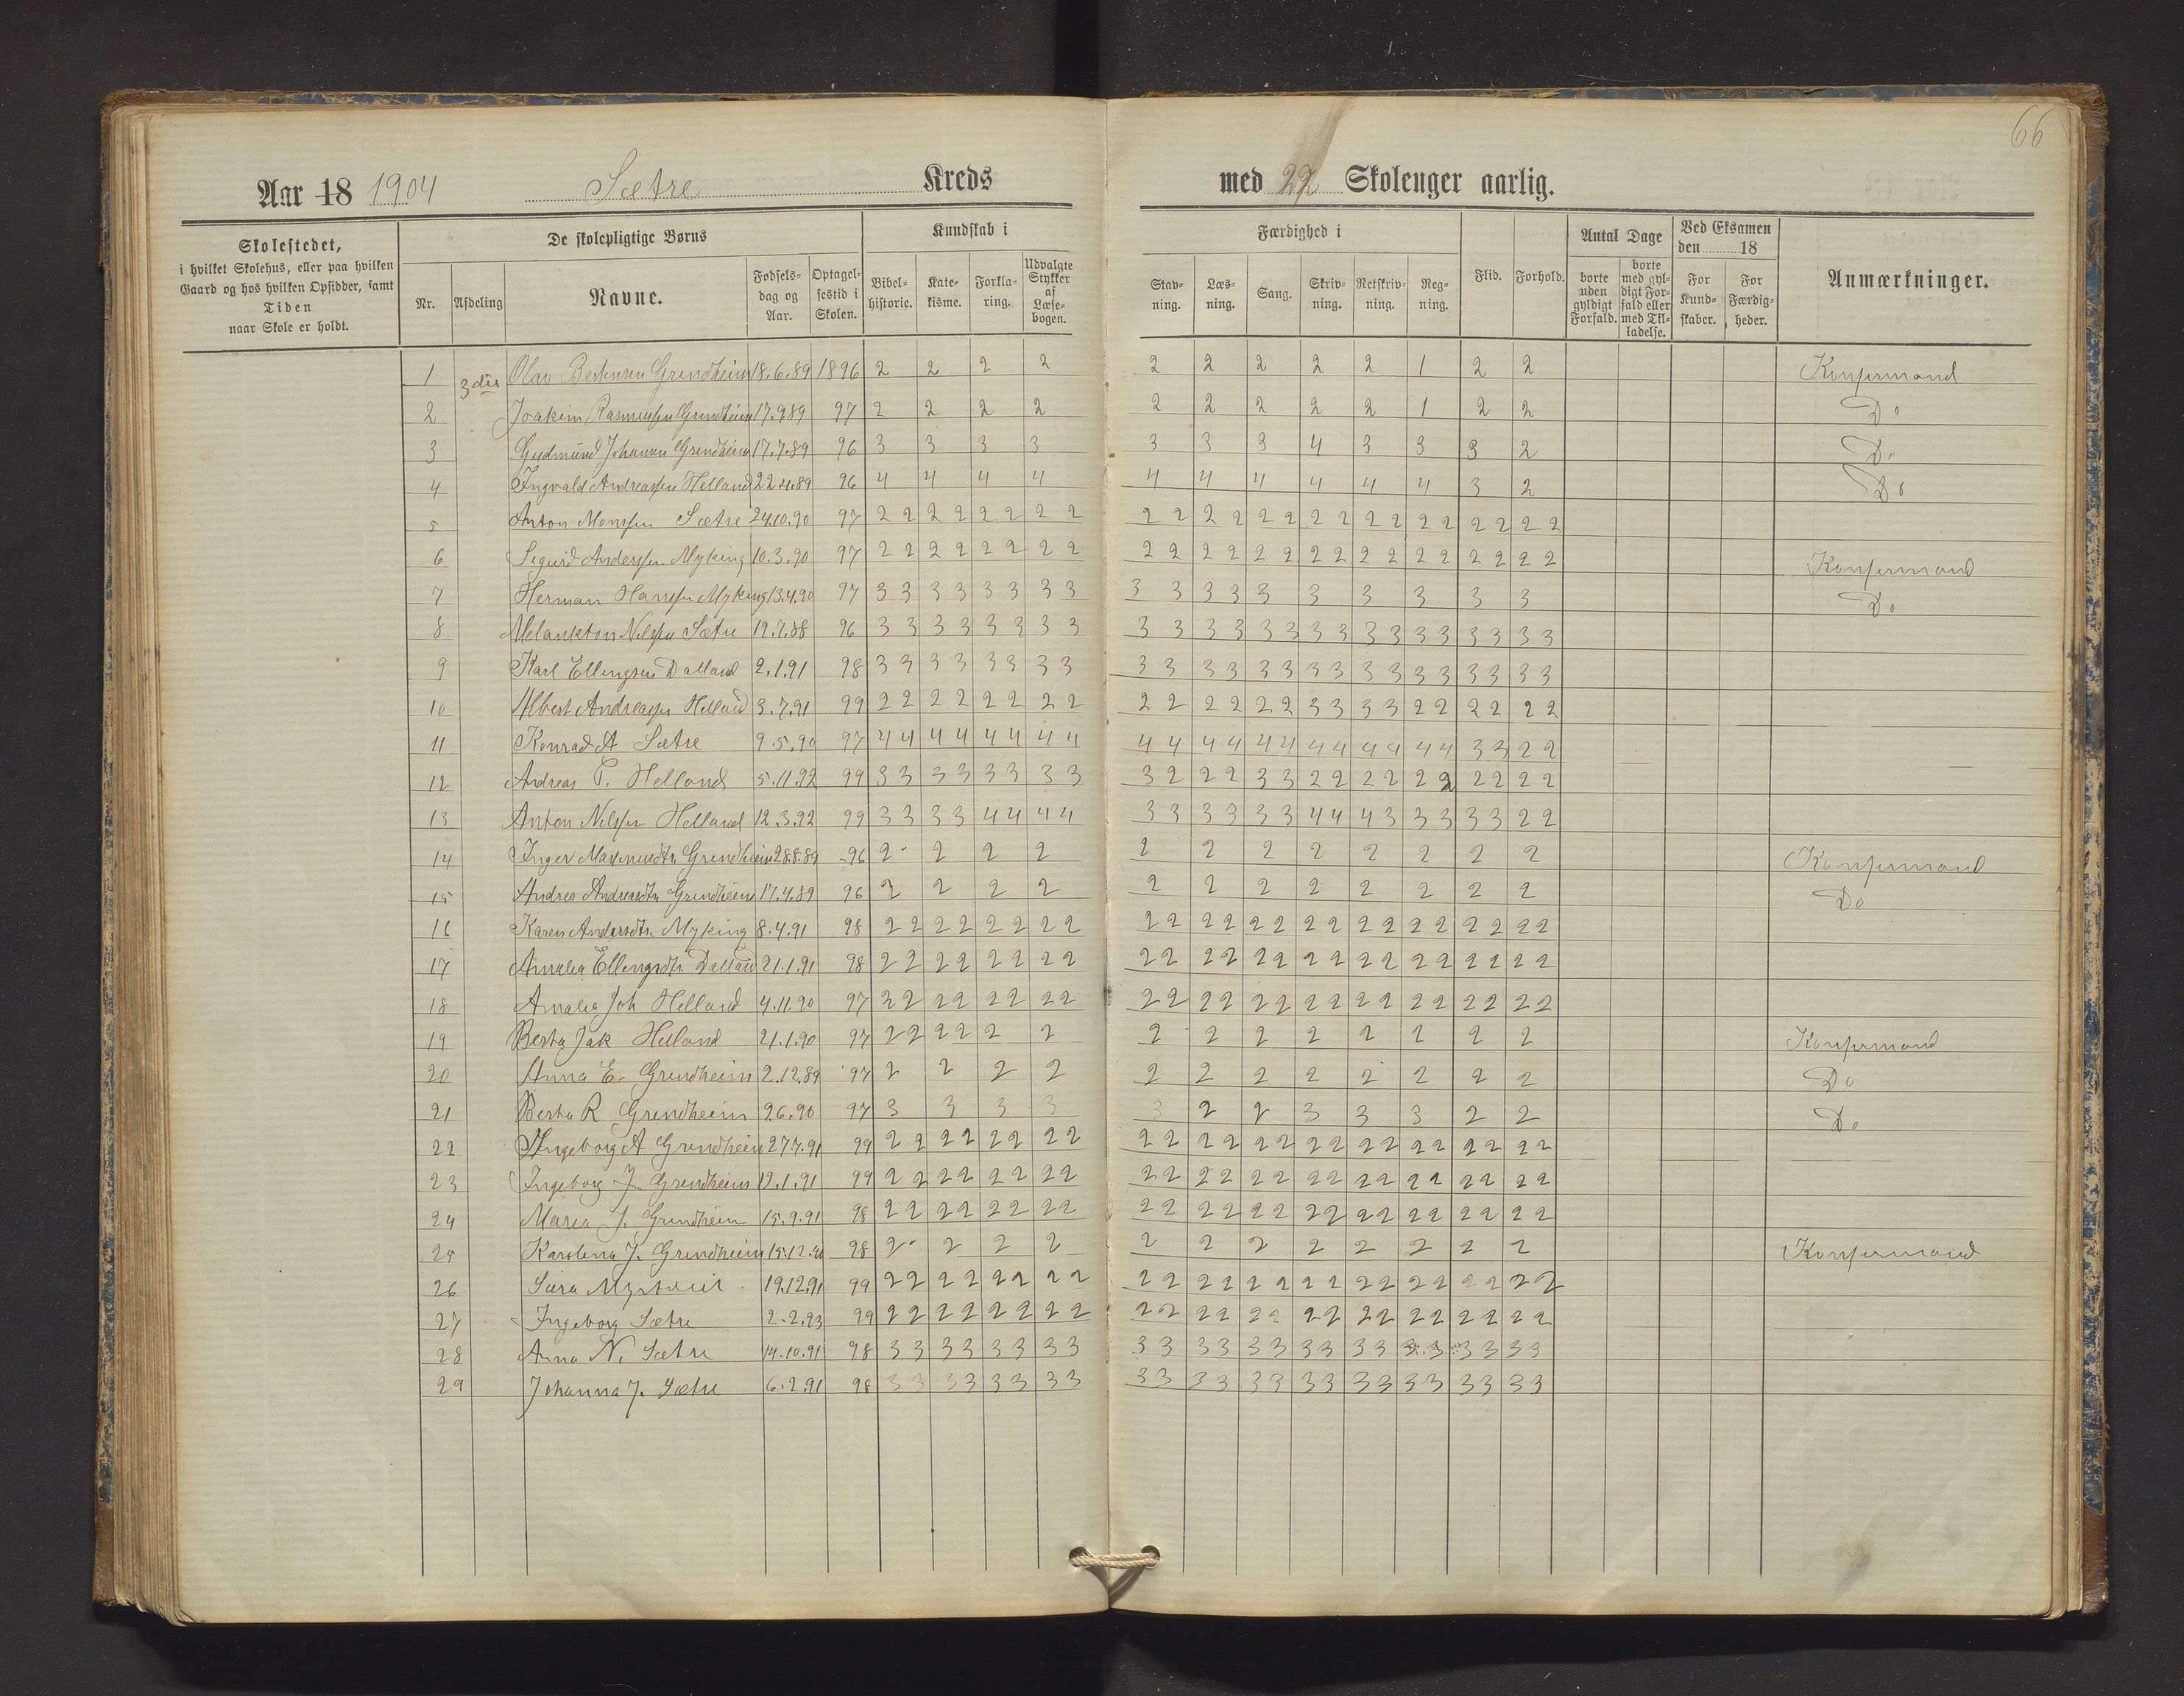 66
Aar 18 1904 Sætre Kreds med 22 Skoleuger aarlig.
Skolestedet, i hvilket Skolehus, eller paa hvilken Gaard og hos hvilken Opsidder, samt Tiden naar Skole er holdt.
De skolepligtige Børns
Kundskab i
Færdighed i
Antal Dage
Ved Eksamen den 18
Nr. Afdeling Navne. Fødselsdag og Aar. Optagelsestid i Skolen. Bibelhistorie. Katekisme. Forklaring. Udvalgte Stykker af Læsebogen. Stavning. Læsning. Sang. Skrivning. Retskrivning. Regning. Flid. Forhold. borte uden gyldigt Forfald. borte med gyldigt Forfald eller med Tilladelse. For Kundskaber. For Færdigheder. Anmærkninger.
1 3die Olav Grindheim 18.6.89 1896 2 2 2 2 2 2 2 2 2 1 2 2 Konfirmand
2 Joakim Rasmussen Grindheim 17.9.89 97 2 2 2 2 2 2 2 2 2 1 2 2 Do
3 Gudmund Johansen Grindheim 17.7.89 96 3 3 3 3 3 3 3 4 3 3 3 2 Do
4 Ingvald Andreassen Helland 22.4.89 96 4 4 4 4 4 4 4 4 4 4 3 2 Do
5 Anton Monssen Sætre 24.10.90 97 2 2 2 2 2 2 2 2 2 2 2 2 2 2 2 2 2 2 2 2 2 2 2 2
6 Sigurd Anderssen Myking 10.3.90 97 2 2 2 2 2 2 2 2 2 2 2 2 2 2 2 2 2 2 2 2 2 2 2 2 Konfirmand
7 Herman Hanssen Myking 13.4.90 97 3 3 3 3 3 3 3 3 3 3 3 3 3 3 3 3 3 3 Do
8 Melankton Nilssen Sætre 19.7.88 96 3 3 3 3 3 3 3 3 3 3 3 3 3 3 3 3 3 3 3 3 3 3 3 3
9 Karl Ellingsen Dalland 2.1.91 98 3 3 3 3 3 3 3 3 3 3 3 3 3 3 3 3 3 3 3 3 3 3 3 3
10 Albert Andreassen Helland 3.7.91 99 2 2 2 2 2 2 2 2 2 2 2 2 2 2 3 3 3 3 2 2 2 2 2 2
11 Konrad A Sætre 9.5.90 97 4 4 4 4 4 4 4 4 4 4 4 4 4 4 4 4 4 4 4 4 3 3 2 2
12 Andreas P. Helland 5.11.92 99 3 3 3 3 3 3 3 3 3 2 2 2 3 3 2 2 2 2 2 2 2 2 2 2
13 Anton Nilssen Helland 12.3.92 99 3 3 3 3 4 4 4 4 3 3 3 3 3 3 4 4 4 3 3 3 3 3 2 2
14 Inger Grindheim 28.8.89 96 2 2 2 2 2 2 2 2 2 2 2 2 Konfirmand
15 Andrea Andreasdtr Grindheim 17.4.89 96 2 2 2 2 2 2 2 2 2 2 2 2 Do
16 Karen Andersdtr. Myking 8.4.91 98 2 2 2 2 2 2 2 2 2 2 2 2 2 2 2 2 2 2 2 2 2 2 2 2
17 Amalia Ellingsdtr. Dalland 21.1.91 98 2 2 2 2 2 2 2 2 2 2 2 2 2 2 2 2 2 2 2 2 2 2 2 2
18 Amalia Joh Helland 4.11.90 97 3 2 2 2 2 2 2 2 2 2 2 2 2 2 2 2 2 2 2 2 2 2 2 2
19 Berta Jak Helland 21.1.90 97 2 2 2 2 2 2 2 2 2 2 2 2 2 2 Konfirmand
20 Anna E. Grindheim 2.12.89 97 2 2 2 2 2 2 2 2 2 2 2 2 Do
21 Berta R Grindheim 26.90 97 3 3 3 3 3 2 2 3 3 3 2 2 Do
22 Ingeborg A Grindheim 27.7.91 99 2 2 2 2 2 2 2 2 2 2 2 2 2 2 2 2 2 2 2 2 2 2 2 2
23 Ingeborg J. Grindheim 12.1.91 99 2 2 2 2 2 2 2 2 2 2 2 2 2 2 2 2 2 2 2 2 2 2 2 2
24 Maria J. Grindheim 15.9.91 98 2 2 2 2 2 2 2 2 2 2 2 2 2 2 2 2 2 2 2 2 2 2 2 2
25 Karolina J. Grindheim 15.12.90 98 2 2 2 2 2 2 2 2 2 2 2 2 Konfirmand
26 Sara 19.12.91 99 2 2 2 2 2 2 2 2 2 2 2 2 2 2 2 2 2 2 2 2 2 2 2 2
27 Ingeborg Sætre 2.2.93 99 2 2 2 2 2 2 2 2 2 2 2 2 2 2 2 2 2 2 2 2 2 2 2 2
28 Anna N. Sætre 14.10.91 98 3 3 3 3 3 3 3 3 3 3 3 3 3 3 3 3 3 3 3 3 3 3 3 3
29 Johanna J. Sætre 6.2.91 98 3 3 3 3 3 3 3 3 3 3 3 3 3 3 3 3 3 3 3 3 3 3 3 3